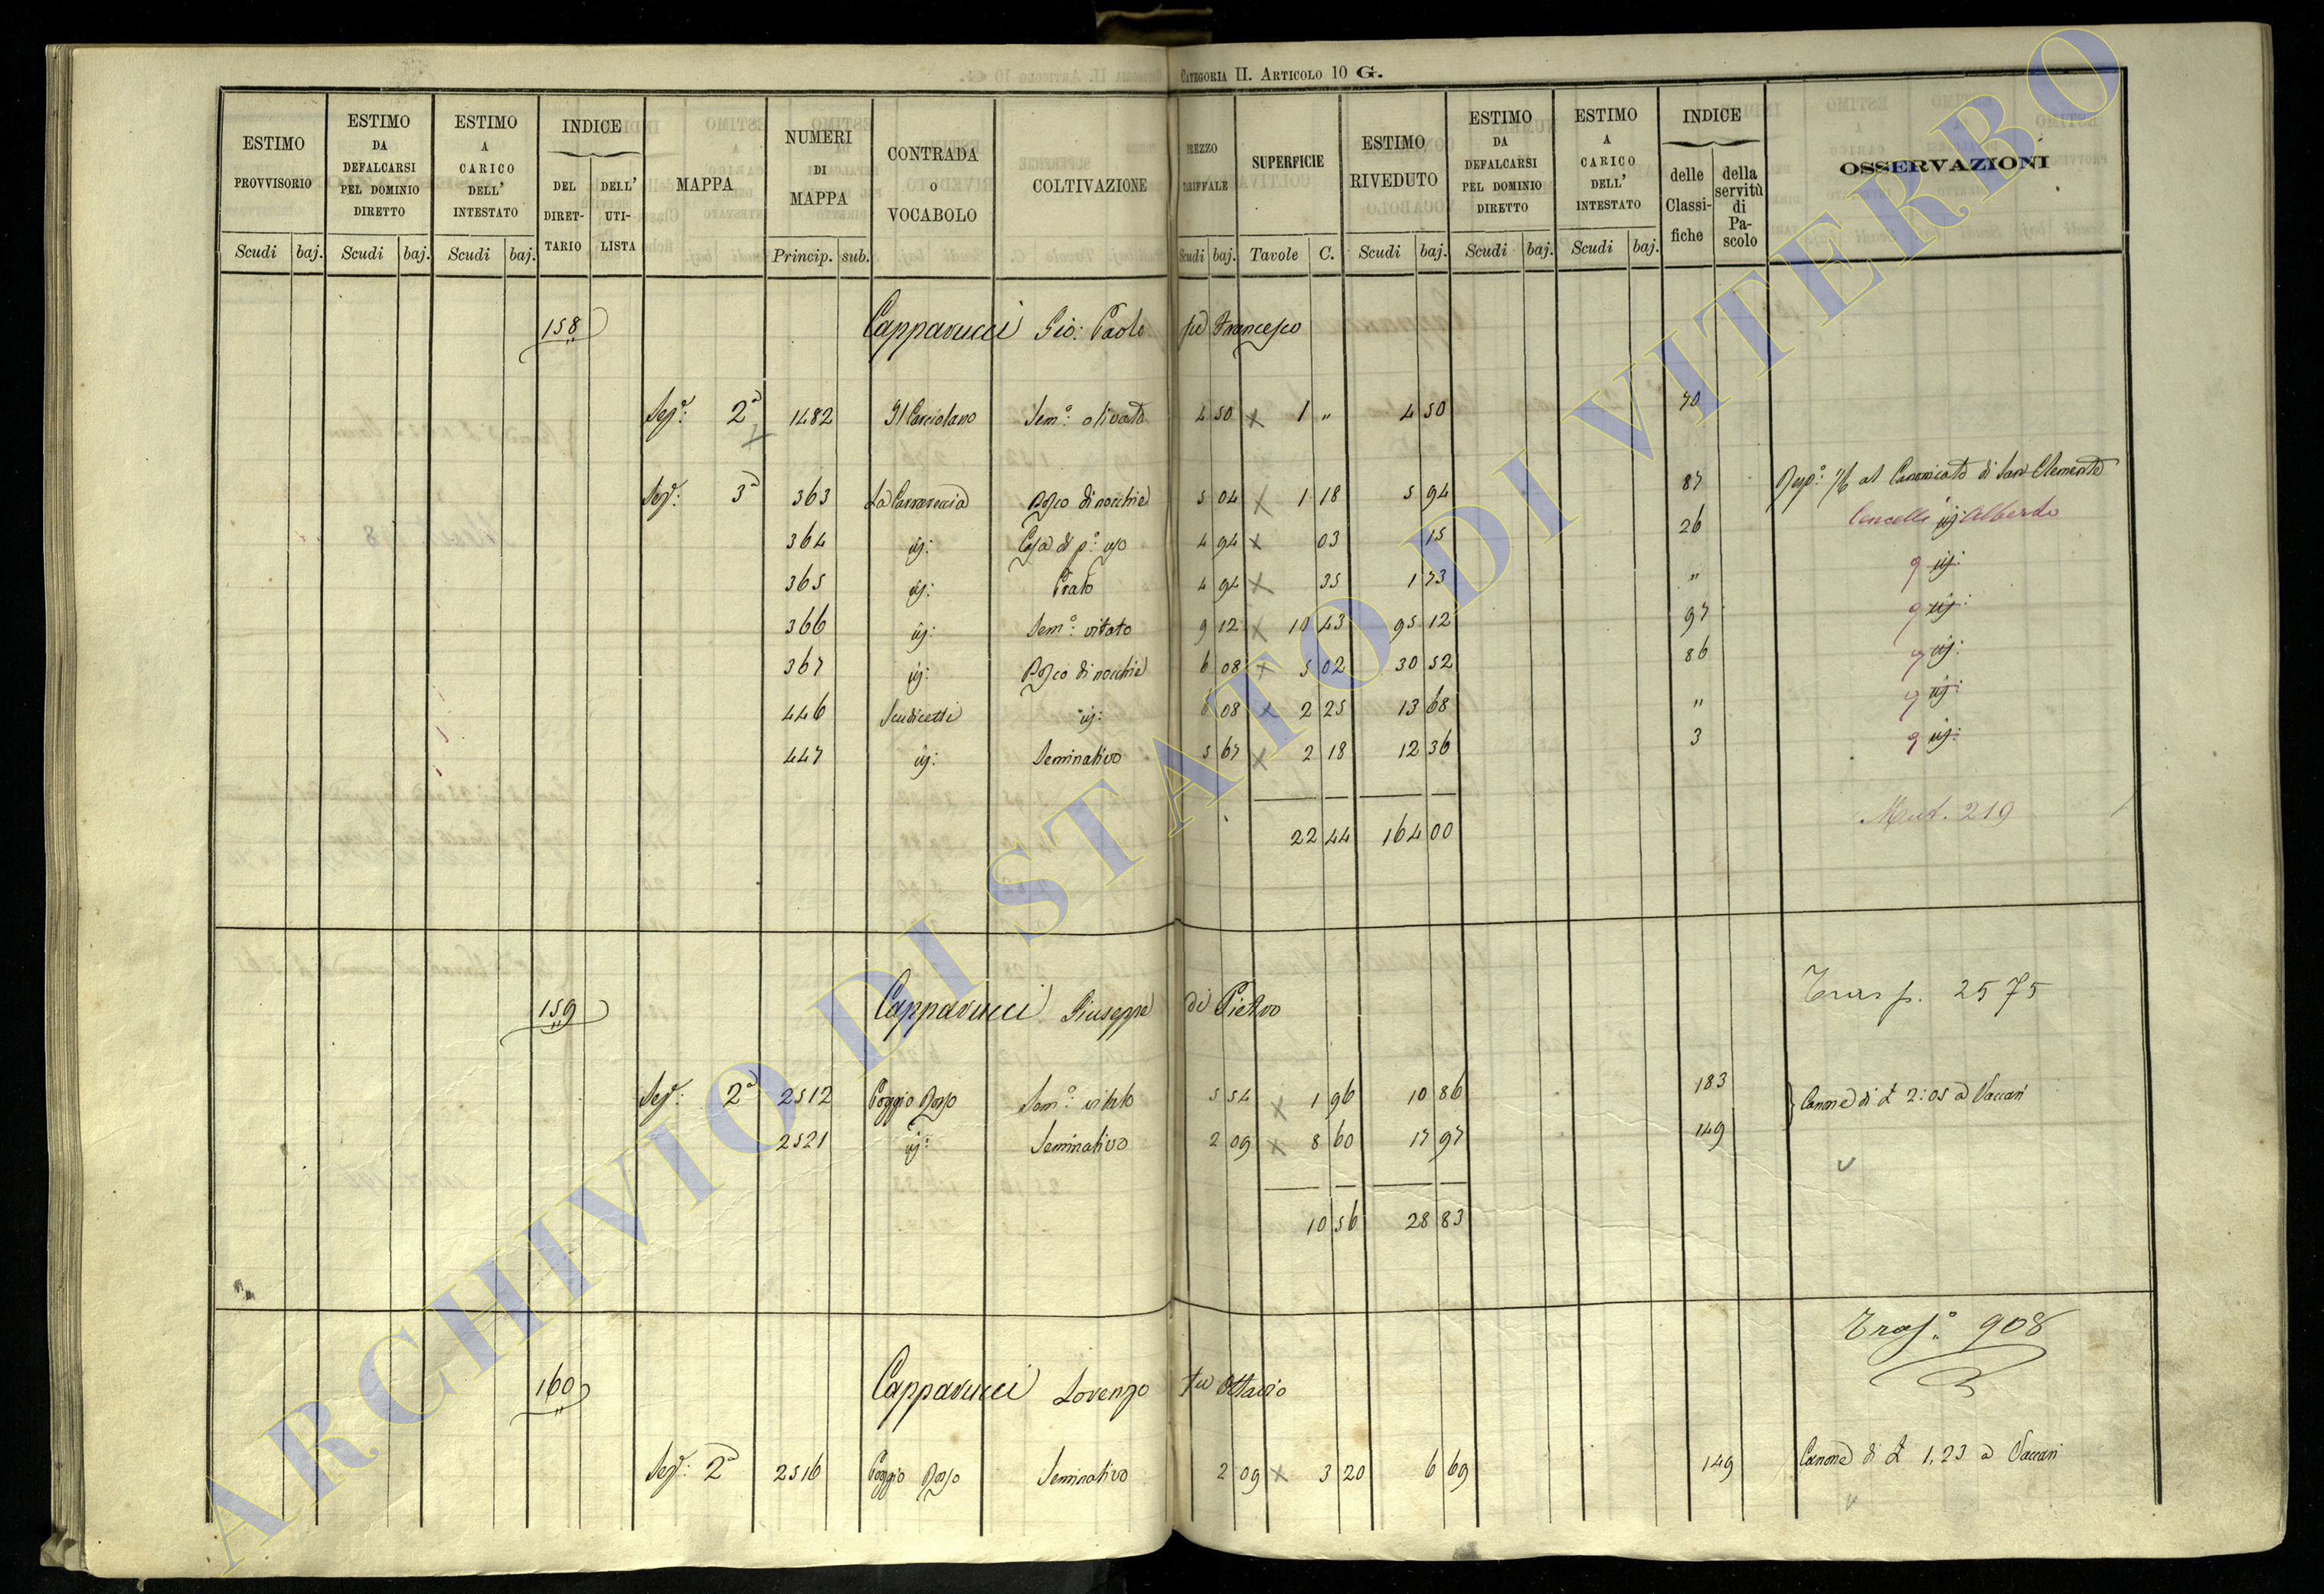 CATEGORIA II. ARTICOLO 10 G.
ESTIMO PROVVISORIO Scudi baj.
ESTIMO DA DEFALCARSI PEL DOMINIO DIRETTO Scudi baj.
ESTIMO A CARICO DELL' INTESTATO Scudi baj.
INDICE DEL DIRETTARIO DELL' UTILISTA
MAPPA
NUMERI DI MAPPA Princip. sub.
CONTRADA O VOCABOLO
COLTIVAZIONE
REZZO ARIFFALE Scudi baj.
SUPERFICIE Tavole C.
ESTIMO RIVEDUTO Scudi baj.
ESTIMO DA DEFALCARSI PEL DOMINIO DIRETTO Scudi baj.
ESTIMO A CARICO DELL' INTESTATO Scudi baj.
INDICE delle Classifiche della servitù di Pascolo
OSSERVAZIONI
158 Capparucci Gio: Paolo fu Francesco
Sez.e: 2a 1482 Il Carciolano Sem.o: olivato 4 50 x 1 " 4 50 70
Sez.e: 3a 363 La Carrareccia Bosco di nocchie 5 04 x 1 18 5 94 87 Resp.o: 1/6 al Canonicato di San Clemente
364 iij: Casa di p.o: uso 4 94 x 03 15 26 Cencelli iij: Alberto
365 iij: Prato 4 94 x 35 1 73 " q iij:
366 iij: Sem.o: vitato 9 12 x 10 43 95 12 97 q iij:
367 iij: Bosco di nocchie 6 08 x 5 02 30 52 86 q iij:
446 Scudicetti iij: 6 08 x 2 25 13 68 " q iij:
447 iij: Seminativo 5 67 x 2 18 12 36 3 q iij:
22 44 164 00 Mut. 219
159 Capparucci Giuseppe di Pietro Trasp. 2575
Sez.e: 2a 2512 Poggio Rosso Sem.o: vitato 5 54 x 1 96 10 86 183 Canone di £ 2:05 a Vaccari
2521 iij: Seminativo 2 09 x 8 60 17 97 149
10 56 28 83
Trasp.o: 908
160 Capparucci Lorenzo fu Ottavio
Sez.e: 2a 2516 Poggio Rosso Seminativo 2 09 x 3 20 6 69 149 Canone di £ 1,23 a Vaccari
ARCHIVIO DI STATO DI VITERBO